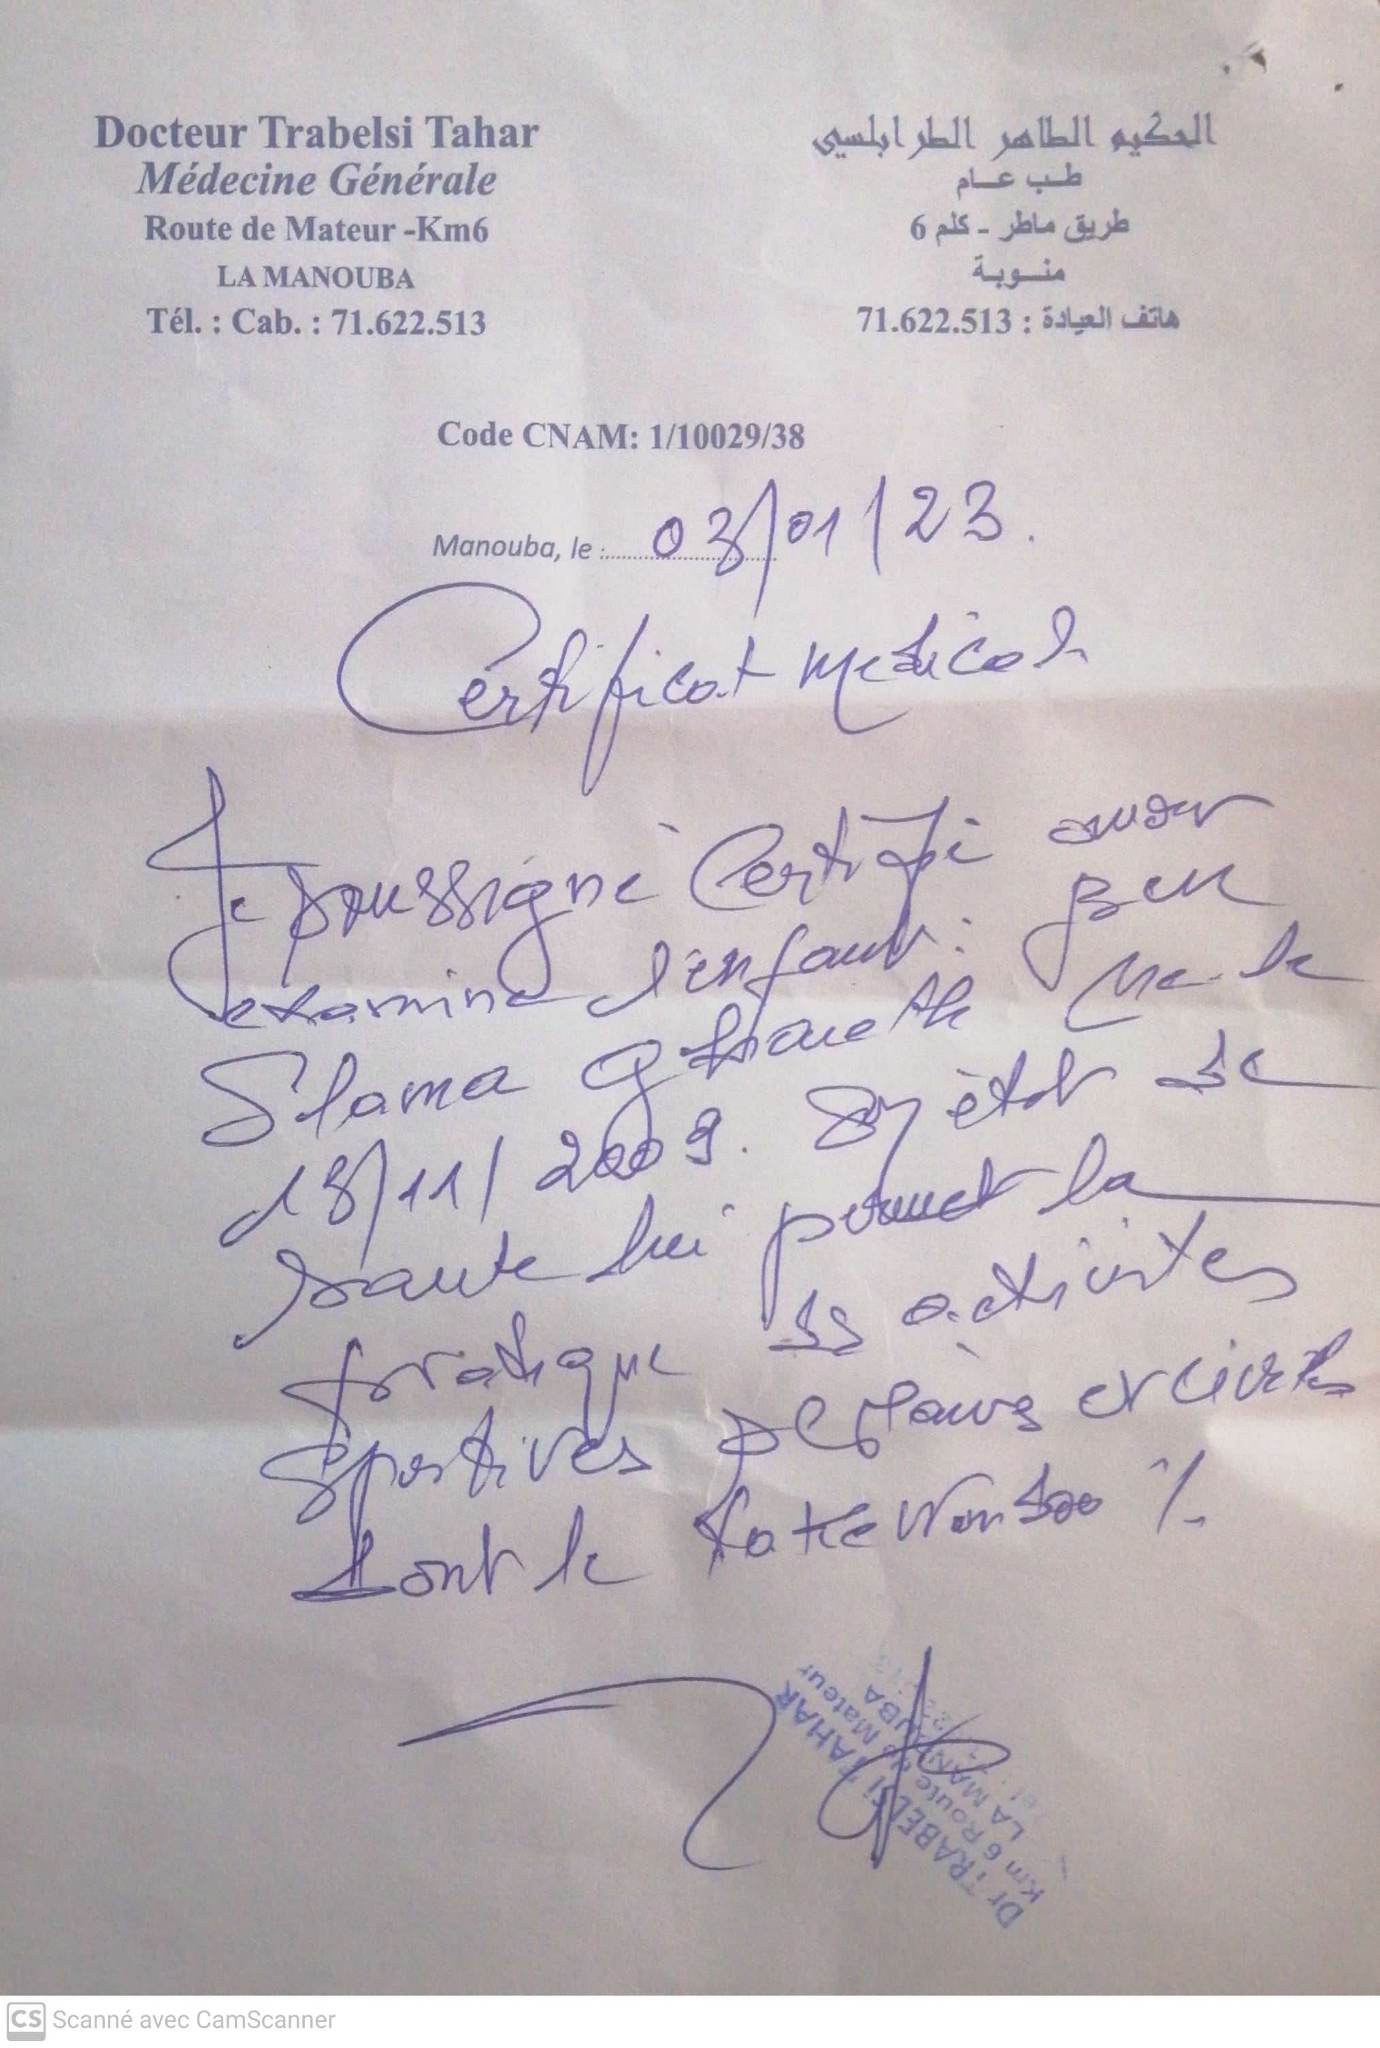 Docteur Trabelsi Tahar
Médecine Générale
Route de Mateur -Km6
LA MANOUBA
Tél. : Cab. : 71.622.513
الحكيم الطاهر الطرابلسي
طب عام
طريق ماطر - كلم 6
منوبة
هاتف العيادة : 71.622.513
Code CNAM: 1/10029/38
Manouba, le : 03/01/23.
Certificat Medical
Je soussigné Certifie avoir
examiné l'enfant : Ben
Slama Née le
18/11/2009. état de
sante lui permet la
pratique activites
sportives et civiles
dont le
Dr TRABELSI TAHAR
Km 6 Route de Mateur
LA MANOUBA
CS Scanné avec CamScanner